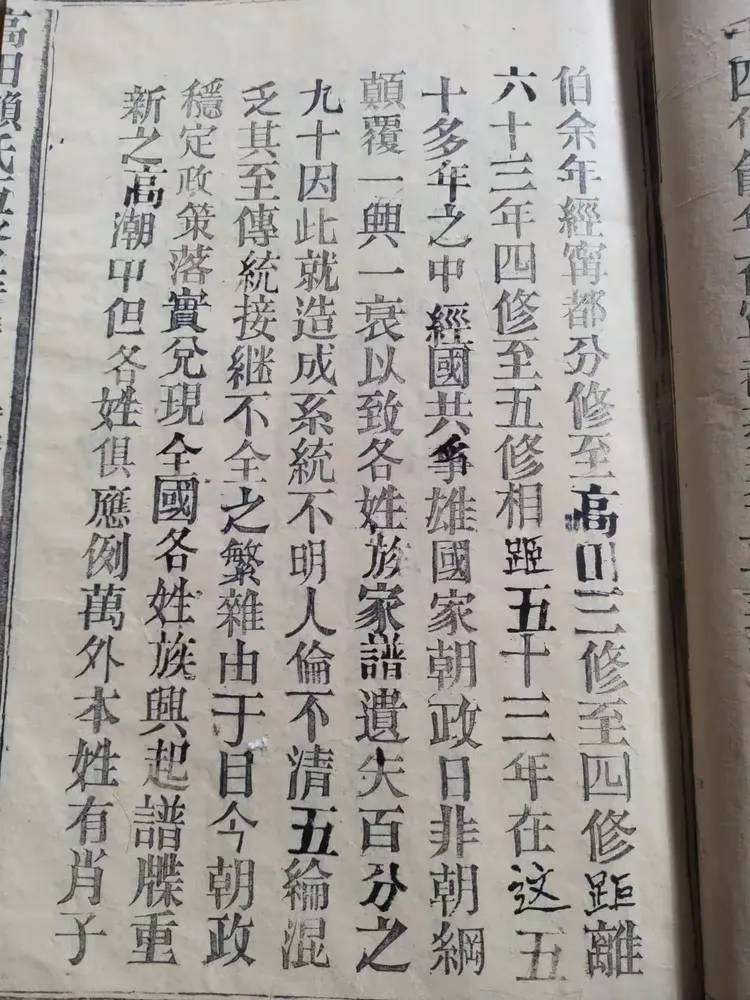 伯余年經甯都分修至高田三修至四修距離
六十三年四修至五修相距五十三年在这五
十多年之中經國共爭雄國家朝政日非朝綱
顛覆一興一衰以致各姓族家譜遺失百分之
九十因此就造成系統不明人倫不清五綸混
乏其至傳統接継不全之繁雜由于目今朝政
穩定政策落實兌現全國各姓族興起譜牒重
新之高潮甲但各姓俱應例萬外本姓有肖子
高田賴氏五修